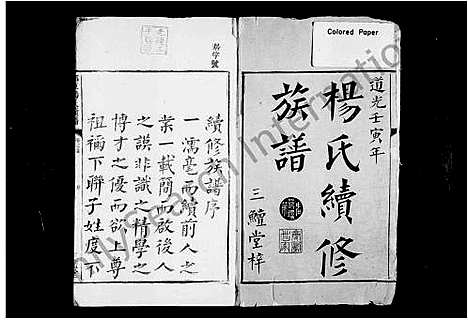 Colored Paper
道光壬寅年
楊氏續修
族譜
三鱣堂梓
續修族譜序
一濡毫而續前人之
業一載簡而啟後人
之誤非識之精學之
博才之優而欲上尊
祖禰下聯子姓度下
FamilySearch International